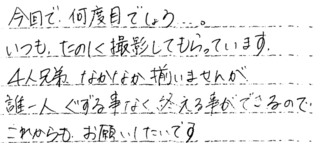 今回で、何度目でしょう…。
いつも、たのしく撮影してもらっています。
4人兄弟 なかなか揃いませんが
誰一人 ぐずる事なく、終える事ができるので、
これからも、お願いしたいです